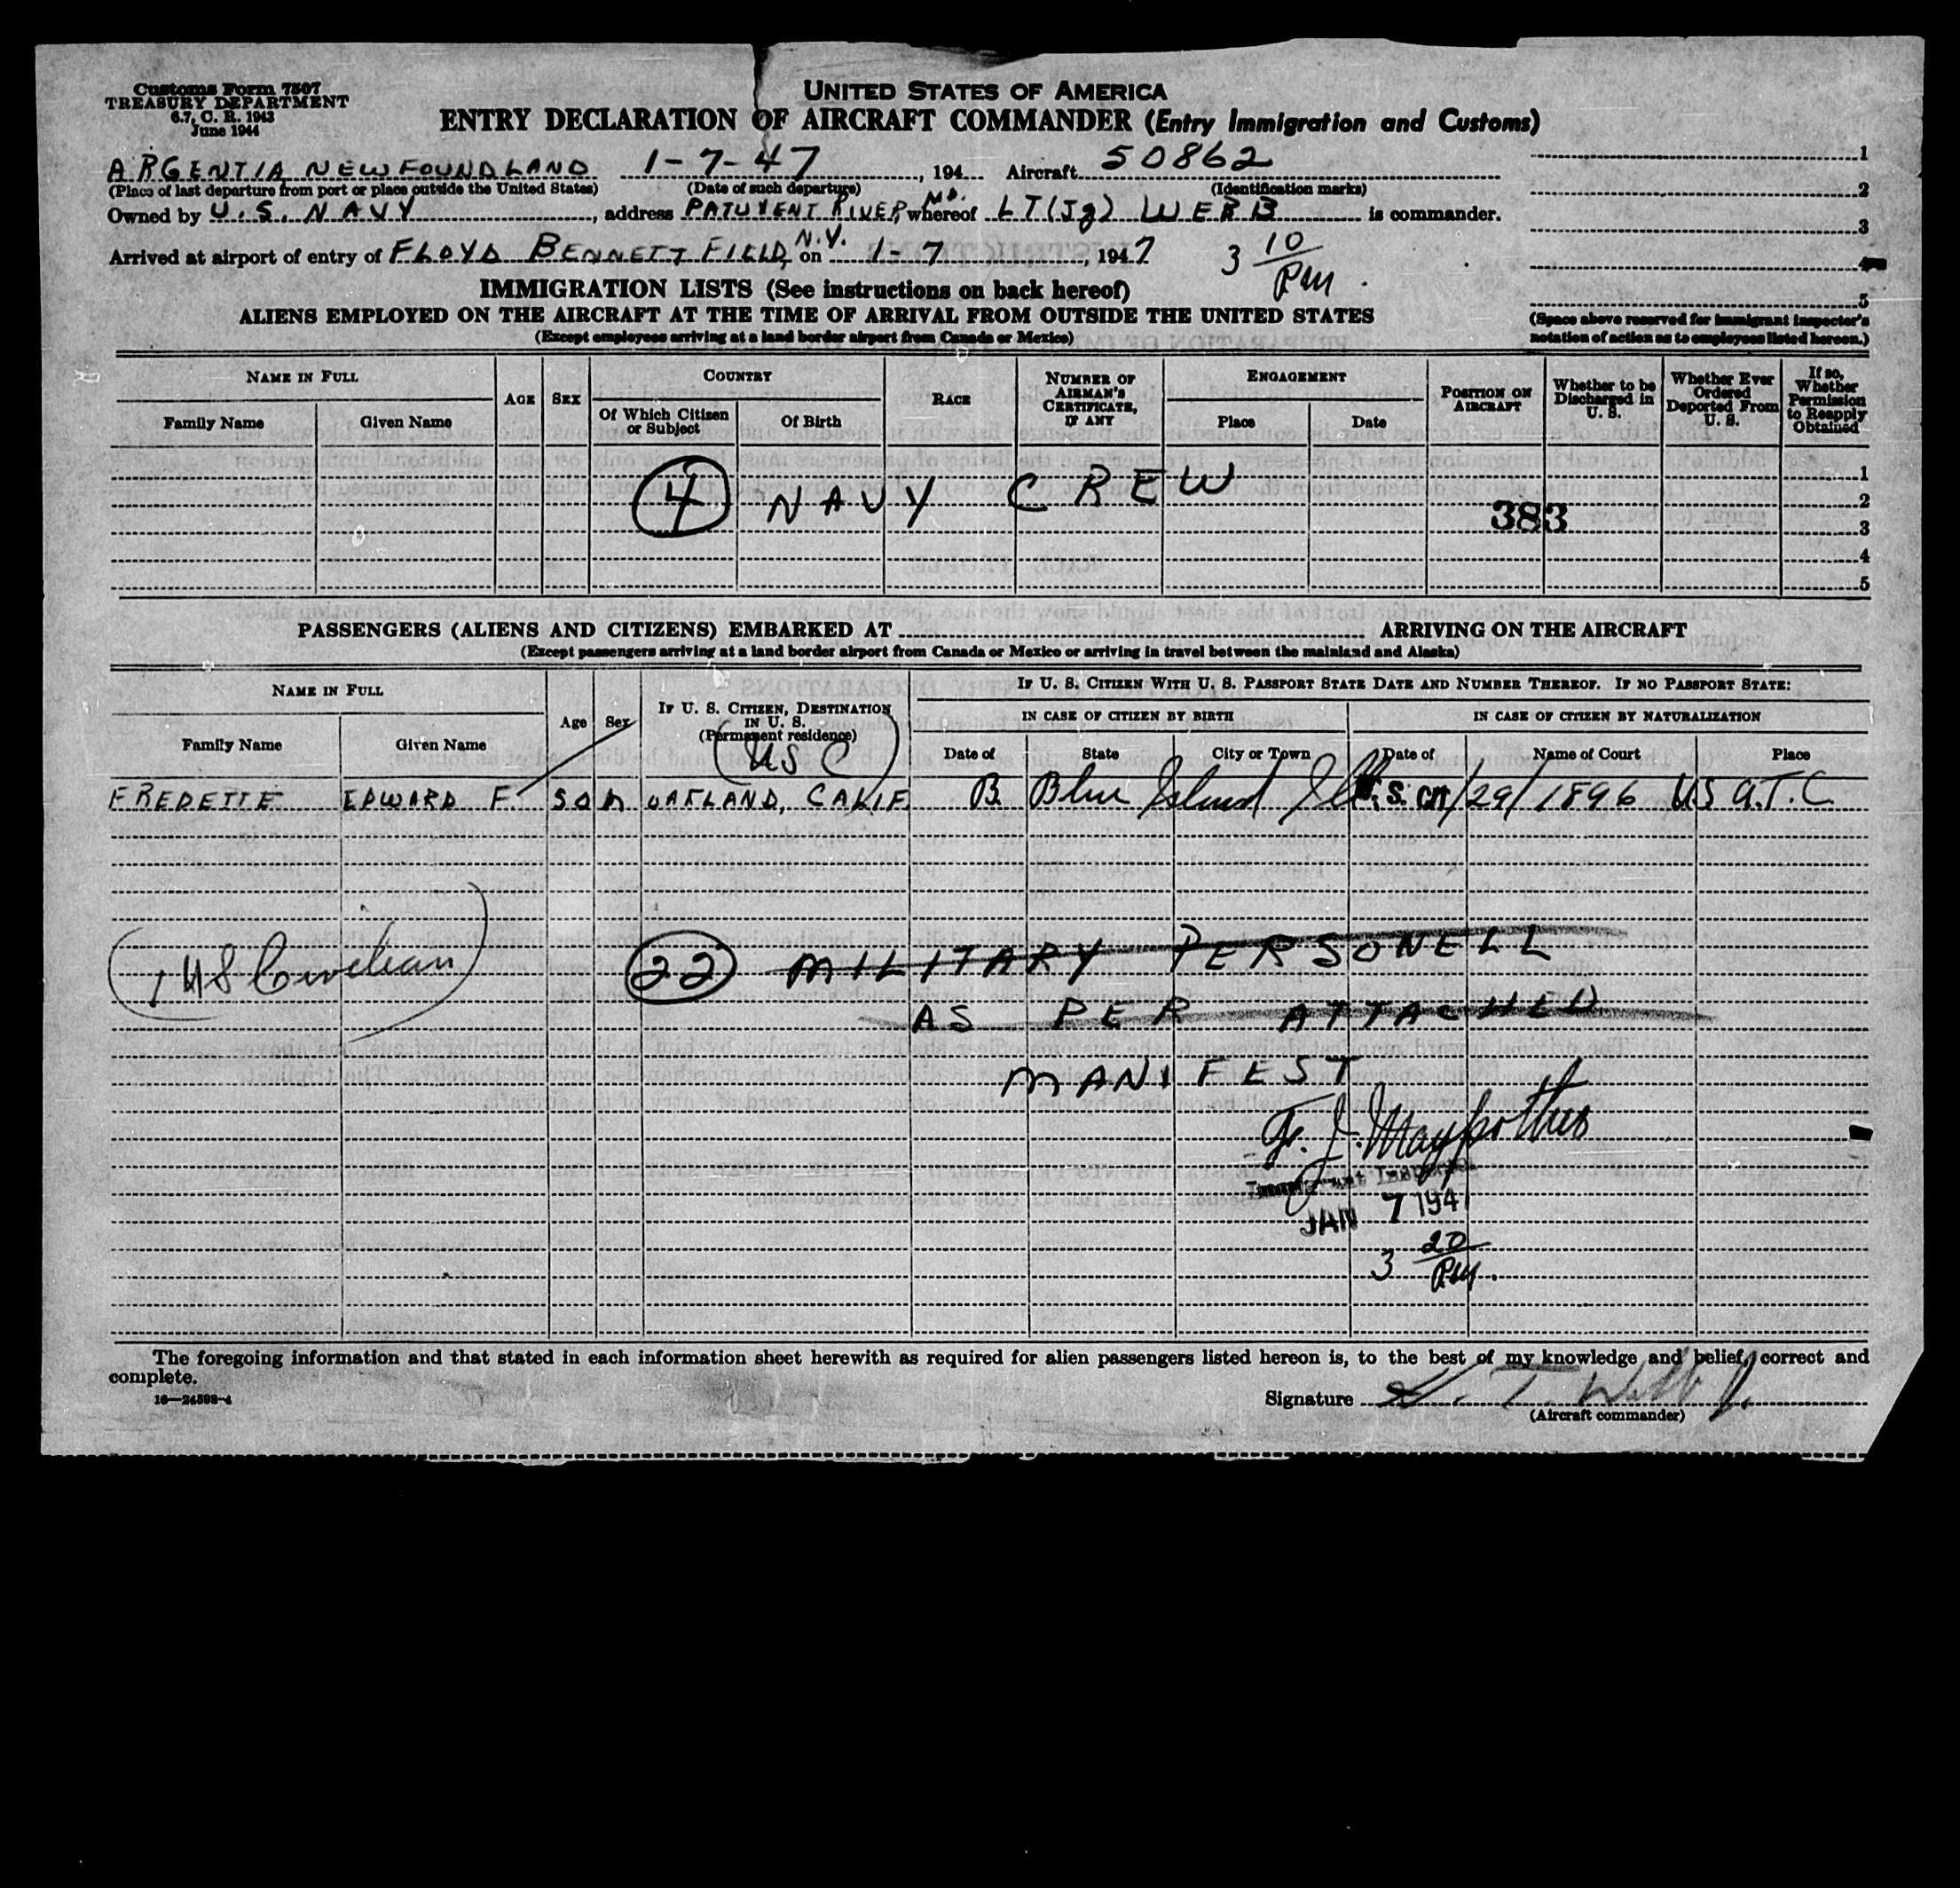 Customs Form 7507
TREASURY DEPARTMENT
6.7, C. R. 1943
June 1944
UNITED STATES OF AMERICA
ENTRY DECLARATION OF AIRCRAFT COMMANDER (Entry Immigration and Customs)
ARGENTIA NEWFOUNDLAND 1-7-47, 194 Aircraft 50862
(Place of last departure from port or place outside the United States) (Date of such departure) (Identification marks)
Owned by U.S. NAVY, address PATUXENT RIVER MD. whereof LT(Jg) WEBB is commander.
Arrived at airport of entry of FLOYD BENNETT FIELD, N.Y. on 1-7, 1947 3 10/PM
1
2
3
4
5
(Space above reserved for immigrant inspector's
notation of action as to employees listed hereon.)
IMMIGRATION LISTS (See instructions on back hereof)
ALIENS EMPLOYED ON THE AIRCRAFT AT THE TIME OF ARRIVAL FROM OUTSIDE THE UNITED STATES
(Except employees arriving at a land border airport from Canada or Mexico)
NAME IN FULL
Family Name Given Name
AGE SEX
COUNTRY
Of Which Citizen or Subject Of Birth
RACE
NUMBER OF AIRMAN'S CERTIFICATE, IF ANY
ENGAGEMENT
Place Date
POSITION ON AIRCRAFT
Whether to be Discharged in U. S.
Whether Ever Ordered Deported From U. S.
If so, Whether Permission to Reapply Obtained
4 NAVY CREW
383
1
2
3
4
5
PASSENGERS (ALIENS AND CITIZENS) EMBARKED AT ARRIVING ON THE AIRCRAFT
(Except passengers arriving at a land border airport from Canada or Mexico or arriving in travel between the mainland and Alaska)
NAME IN FULL
Family Name Given Name
Age Sex
IF U. S. CITIZEN, DESTINATION IN U. S.
(Permanent residence)
(USC)
IF U. S. CITIZEN WITH U. S. PASSPORT STATE DATE AND NUMBER THEREOF. IF NO PASSPORT STATE:
IN CASE OF CITIZEN BY BIRTH IN CASE OF CITIZEN BY NATURALIZATION
Date of State City or Town Date of Name of Court Place
FREDETTE EDWARD F. 50 M OAKLAND, CALIF B. Blue Island Ill. /29/1896 US A.T.C.
(1 US Civilian)
22 MILITARY PERSONELL
AS PER ATTACHED
MANIFEST
Immigrant Inspector
JAN 7 194
3 20/PM.
The foregoing information and that stated in each information sheet herewith as required for alien passengers listed hereon is, to the best of my knowledge and belief, correct and
complete.
16—24598-4
Signature
(Aircraft commander)